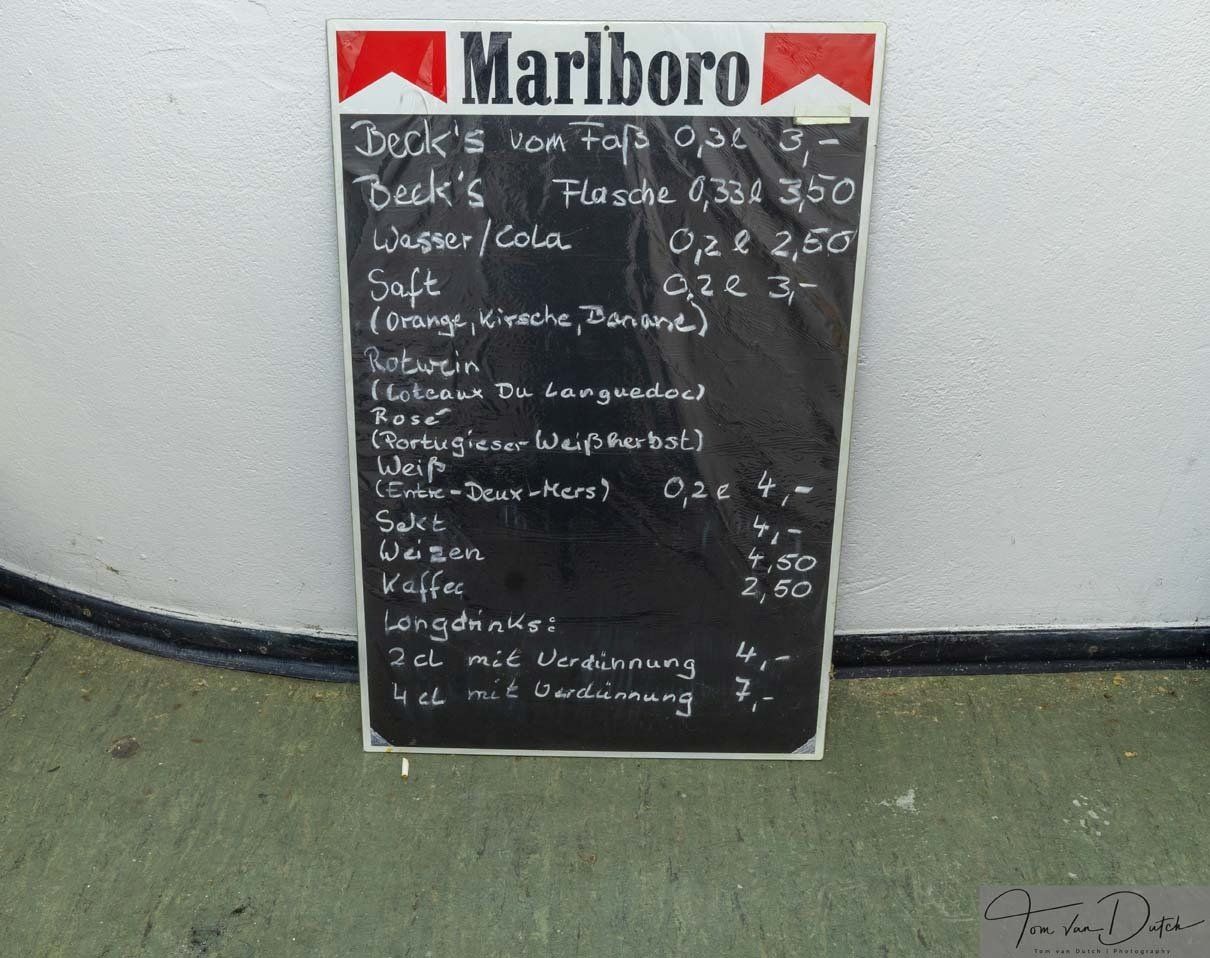 Marlboro
Beck's vom Faß 0,3l 3,-
Beck's Flasche 0,33l 3,50
Wasser/Cola 0,2l 2,50
Saft 0,2l 3,-
(Orange, Kirsche, Banane)
Rotwein
(Coteaux Du Languedoc)
Rosé
(Portugieser Weißherbst)
Weiß
(Entre-Deux-Mers) 0,2l 4,-
Sekt 4,-
Weizen 4,50
Kaffee 2,50
Longdrinks:
2 cl mit Verdünnung 4,-
4 cl mit Verdünnung 7,-
Tom van Dutch
Tom van Dutch | Photography